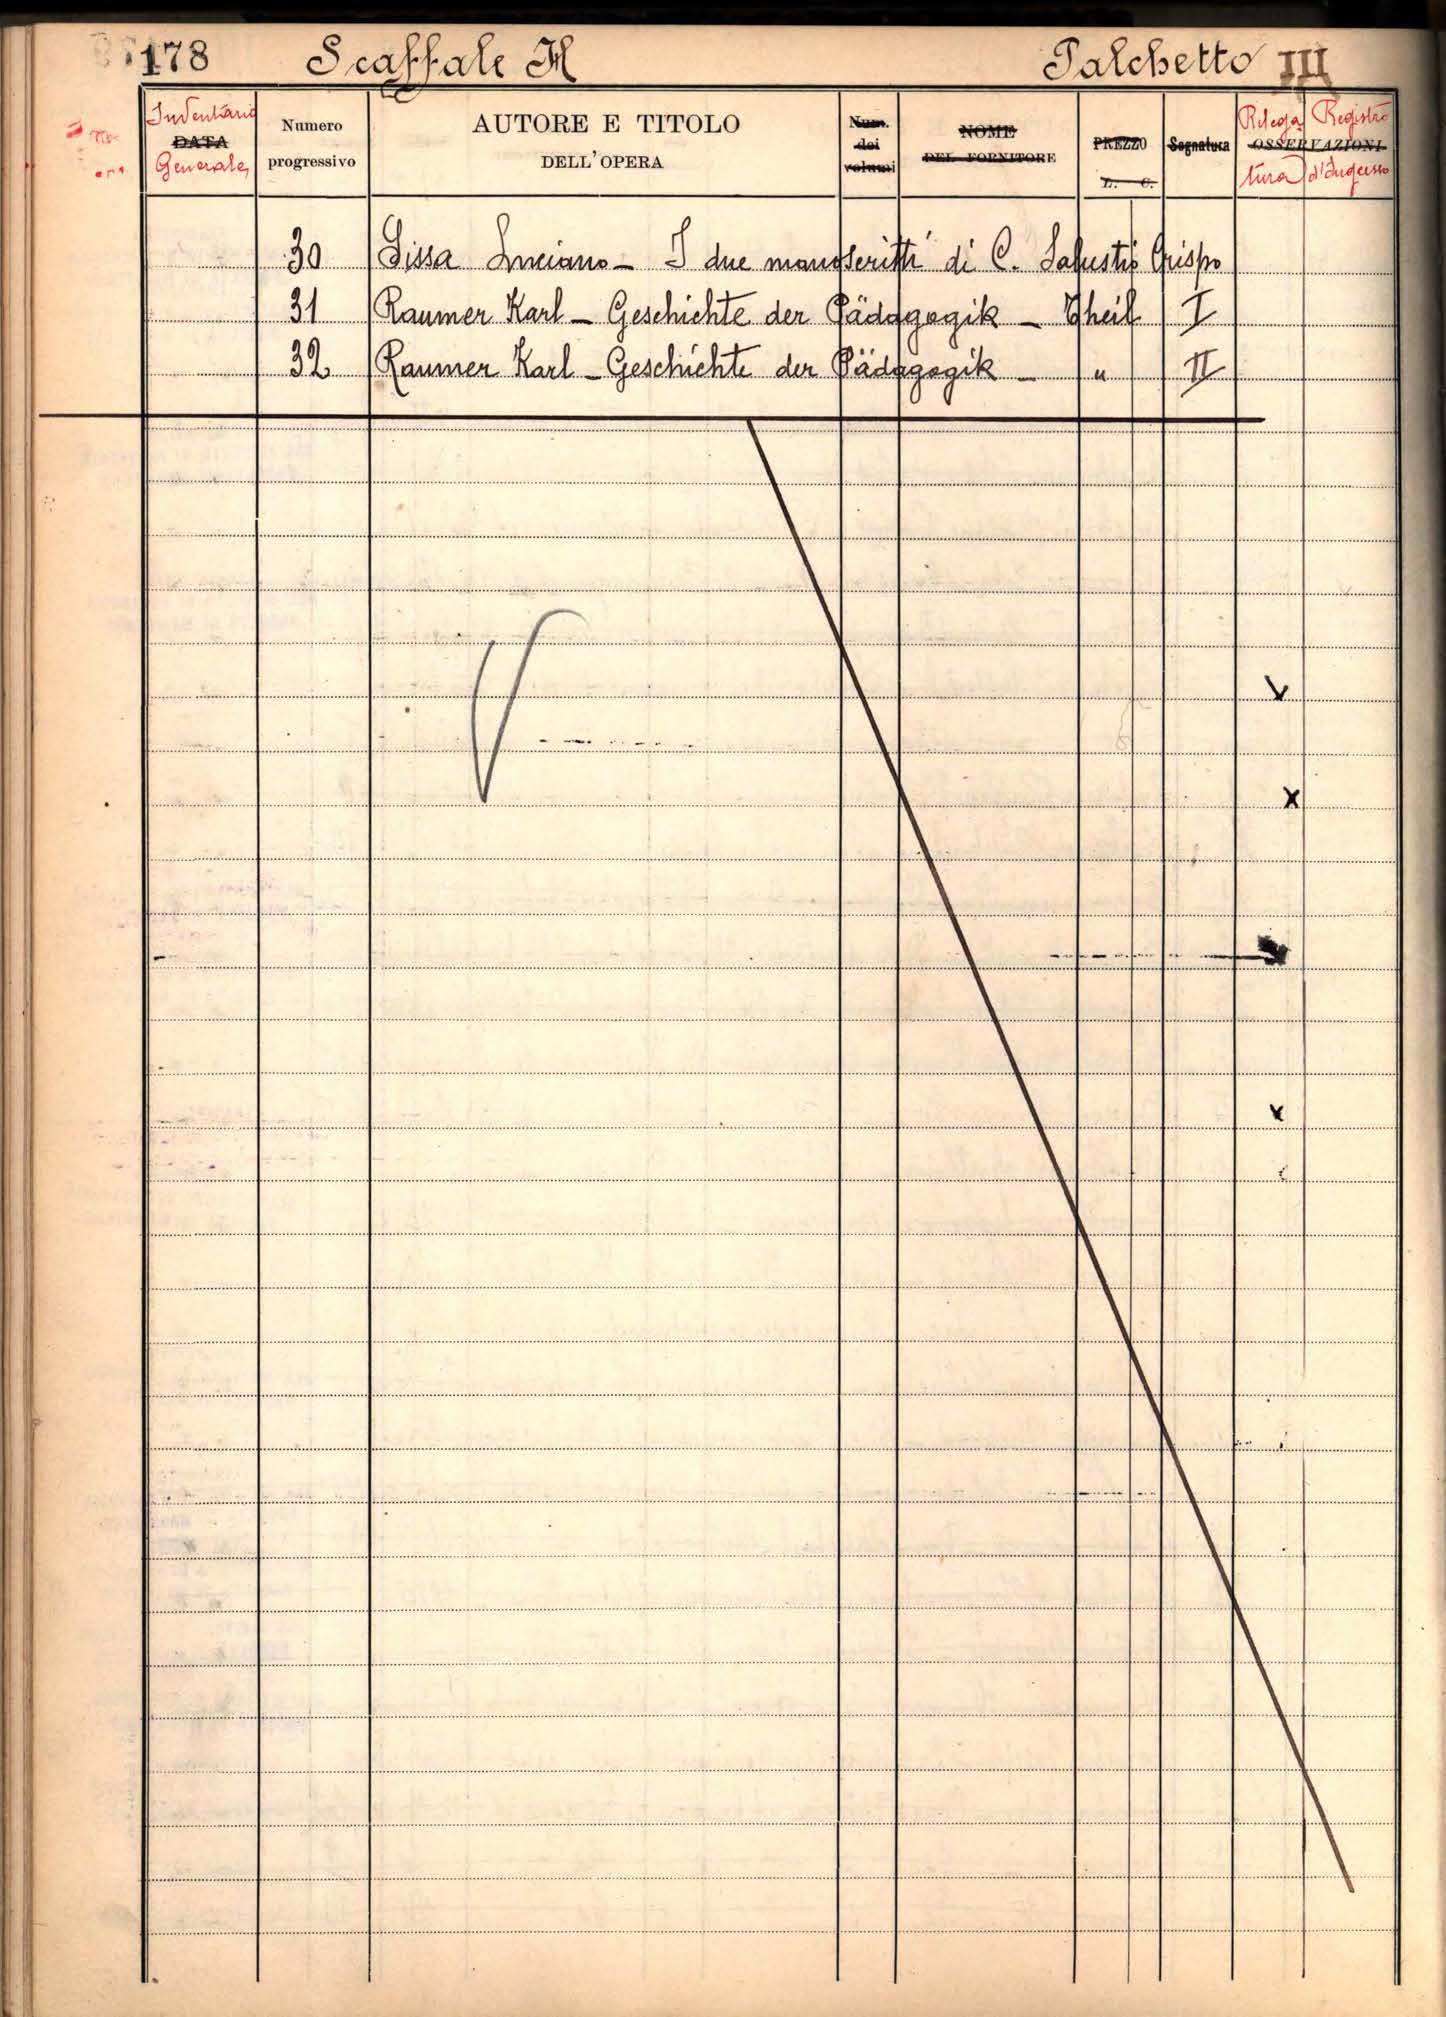 178 Scaffale H Palchetto III
Inventario
DATA
Generale
Numero
progressivo
AUTORE E TITOLO
DELL'OPERA
Num.
dei
volumi
NOME
DEL FORNITORE
PREZZO
L. C.
Segnatura
Rilega Registro
OSSERVAZIONI
tura d'Ingresso
30 Sissa Luciano - I due manoscritti di C. Salustio Crispo
31 Raumer Karl - Geschichte der Pädagogik - Theil I
32 Raumer Karl - Geschichte der Pädagogik - " II